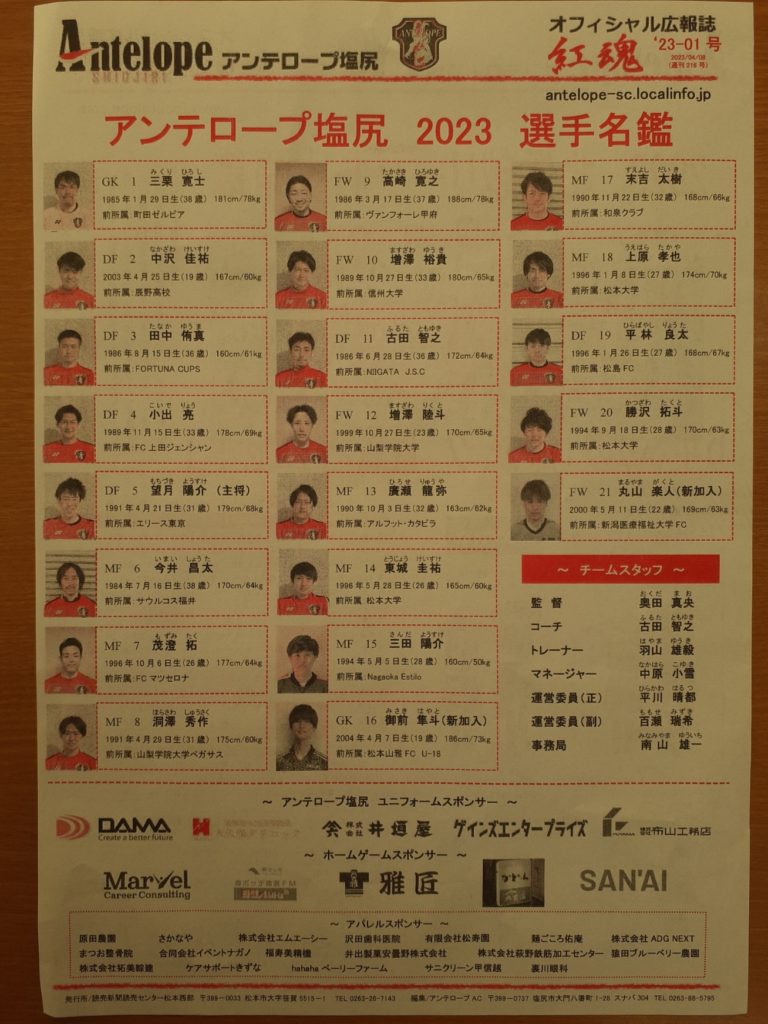 Antelope アンテロープ塩尻
SHIOJIRI
ANTELOPE
オフィシャル広報誌
紅魂 '23-01 号
2023/04/08
(通刊216号)
antelope-sc.localinfo.jp
アンテロープ塩尻 2023 選手名鑑
みくり ひろし
GK 1 三栗 寛士
1985年1月29日生(38歳) 181cm/78kg
前所属:町田ゼルビア
なかざわ けいすけ
DF 2 中沢 佳祐
2003年4月25日生(19歳) 167cm/60kg
前所属:辰野高校
たなか ゆうま
DF 3 田中 侑真
1986年8月15日生(36歳) 160cm/61kg
前所属:FORTUNA CUPS
こいで りょう
DF 4 小出 亮
1989年11月15日生(33歳) 178cm/69kg
前所属:FC上田ジェンシャン
もちづき ようすけ
DF 5 望月 陽介 (主将)
1991年4月21日生(31歳) 179cm/68kg
前所属:エリース東京
いまい しょうた
MF 6 今井 昌太
1984年7月16日生(38歳) 170cm/64kg
前所属:サウルコス福井
もずみ たく
MF 7 茂澄 拓
1996年10月6日生(26歳) 177cm/64kg
前所属:FCマツセロナ
ほらさわ しゅうさく
MF 8 洞澤 秀作
1991年4月29日生(31歳) 175cm/60kg
前所属:山梨学院大学ペガサス
たかさき ひろゆき
FW 9 高崎 寛之
1986年3月17日生(37歳) 188cm/78kg
前所属:ヴァンフォーレ甲府
ますざわ ゆうき
FW 10 増澤 裕貴
1989年10月27日生(33歳) 180cm/65kg
前所属:信州大学
ふるた ともゆき
DF 11 古田 智之
1986年6月28日生(36歳) 172cm/64kg
前所属:NIIGATA J.S.C
ますざわ りくと
FW 12 増澤 陸斗
1999年10月27日生(23歳) 170cm/65kg
前所属:山梨学院大学
ひろせ りゅうや
MF 13 廣瀬 龍弥
1990年10月3日生(32歳) 163cm/62kg
前所属:アルフット・カタビラ
とうじょう けいすけ
MF 14 東城 圭祐
1996年5月28日生(26歳) 165cm/60kg
前所属:松本大学
さんだ ようすけ
MF 15 三田 陽介
1994年5月5日生(28歳) 160cm/50kg
前所属:Nagaoka Estilo
みさき はやと
GK 16 御前 隼斗(新加入)
2004年4月7日生(19歳) 186cm/73kg
前所属:松本山雅FC U-18
すえよし だいき
MF 17 末吉 太樹
1990年11月22日生(32歳) 168cm/66kg
前所属:和泉クラブ
うえはら たかや
MF 18 上原 孝也
1996年1月8日生(27歳) 174cm/70kg
前所属:松本大学
ひらばやし りょうた
DF 19 平林 良太
1996年1月26日生(27歳) 168cm/67kg
前所属:松島FC
かつざわ たくと
FW 20 勝沢 拓斗
1994年9月18日生(28歳) 170cm/63kg
前所属:松本大学
まるやま がくと
FW 21 丸山 楽人(新加入)
2000年5月11日生(22歳) 169cm/63kg
前所属:新潟医療福祉大学FC
～ チームスタッフ ～
おくだ まお
監督 奥田 真央
ふるた ともゆき
コーチ 古田 智之
はやま ゆうき
トレーナー 羽山 雄毅
なかはら こゆき
マネージャー 中原 小雪
ひらかわ はるつ
運営委員(正) 平川 晴都
ももせ みずき
運営委員(副) 百瀬 瑞希
みなみやま ゆういち
事務局 南山 雄一
～ アンテロープ塩尻 ユニフォームスポンサー ～
DAMA
Create a better future
株式会社 井垣屋
ゲインズエンタープライズ
布山工務店
～ ホームゲームスポンサー ～
Marvel
Career Consulting
雅匠
SAN'AI
～ アパレルスポンサー ～
原田農園 さかなや 株式会社エムエーシー 沢田歯科医院 有限会社松寿園 麺ごころ佑庵 株式会社 ADG NEXT
まつお整骨院 合同会社イベントナガノ 福寿美精機 井出製菓安曇野株式会社 株式会社萩野鉄筋加工センター 猿田ブルーベリー農園
株式会社拓美総建 ケアサポートきずな hahahaベーリーファーム サニクリーン甲信越 裏川眼科
発行所/読売新聞読売センター松本西部 〒399-0033 松本市大字笹賀5515-1 TEL 0263-26-7143 編集/アンテロープAC 〒399-0737 塩尻市大門八番町1-28 スナバ304 TEL 0263-88-5795